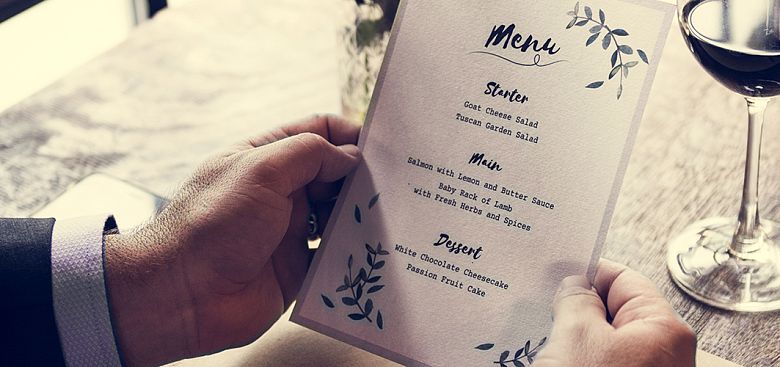 Menu
Starter
Goat Cheese Salad
Tuscan Garden Salad
Main
Salmon with Lemon and Butter Sauce
Baby Rack of Lamb
with Fresh Herbs and Spices
Dessert
White Chocolate Cheesecake
Passion Fruit Cake